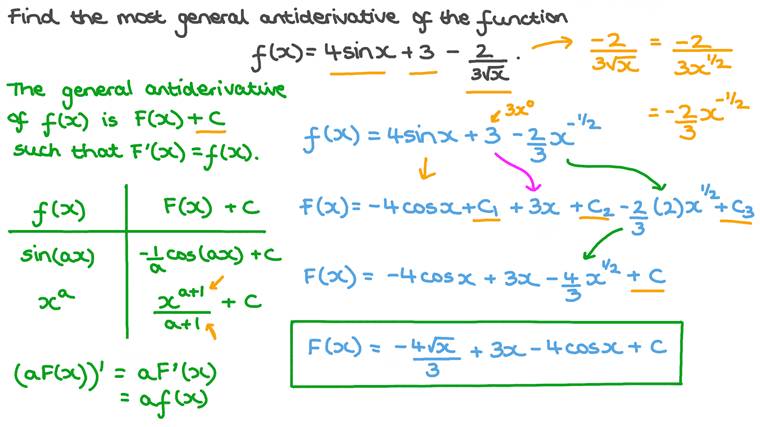 Find the most general antiderivative of the function
f(x) = 4sinx + 3 - 2/(3√x). → -2/(3√x) = -2/(3x^(1/2))
= -2/3 x^(-1/2)
The general antiderivative
of f(x) is F(x) + C
such that F'(x) = f(x).
f(x) | F(x) + C
sin(ax) | -1/a cos(ax) + C
x^a | x^(a+1)/(a+1) + C
(aF(x))' = aF'(x)
= af(x)
3x⁰
f(x) = 4sinx + 3 - 2/3 x^(-1/2)
F(x) = -4cosx + C₁ + 3x + C₂ - 2/3 (2)x^(1/2) + C₃
F(x) = -4cosx + 3x - 4/3 x^(1/2) + C
F(x) = -4√x/3 + 3x - 4cosx + C